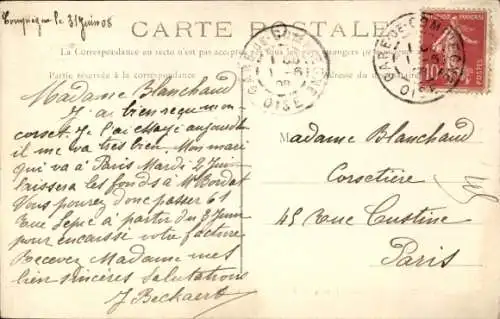 Compiègne le 31 Juin 08
CARTE POSTALE
La Correspondance au recto n'est pas acceptée par tous les pays étrangers
Partie réservée à la correspondance
Adresse du destinataire
GARE DE COMPIEGNE
OISE
GARE DE COMPIEGNE
OISE
10
POSTES
Madame Blanchaud
J'ai bien reçu mon
corset. Je l'ai essayé aujourd'hui
il me va très bien. Mon mari
qui va à Paris Mardi 2 Juin
laissera les fonds à Mr Bordat
Vous pouvez donc passer 61
Rue Lepic à partir du 3 Juin
pour encaisser votre facture
Recevez Madame mes
bien sincères salutations
J Beckaert
Madame Blanchaud
Corsetière
45 Rue Custine
Paris